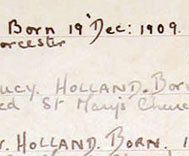 Born 19 Dec: 1909.
orcester
ucy. HOLLAND. Born
ed St Mary's Churc
. HOLLAND. BORN. 1